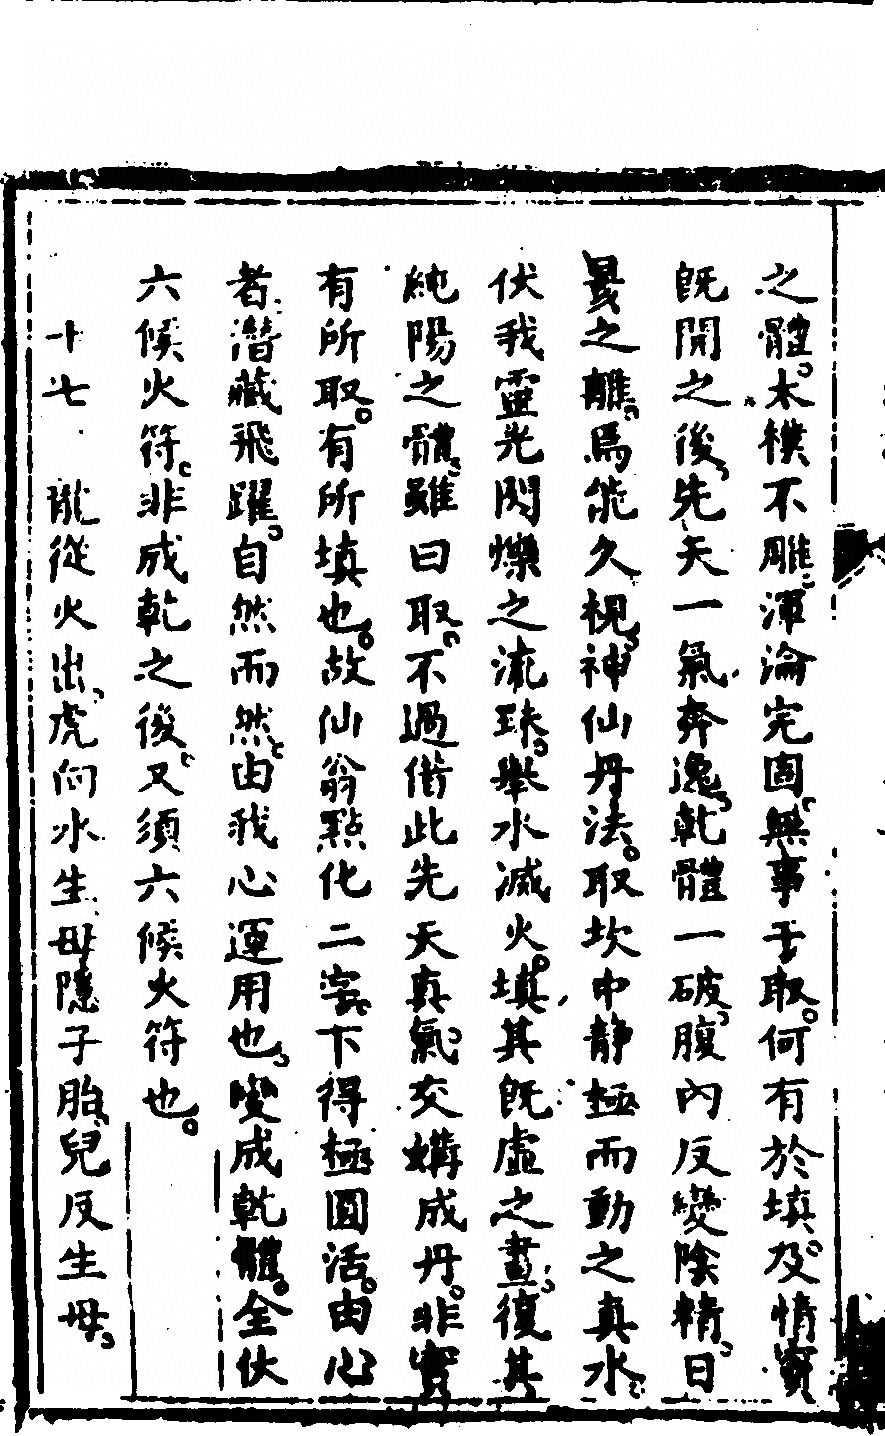 之體。木樸不雕。渾淪完固。無事于取。何有於填。及情竇
既開之後。先天一氣奔逸。乾體一破。腹內反變陰精。日
昃之離。焉能久視。神仙丹法。取坎中靜極而動之真水。
伏我靈光閃爍之流珠。舉水滅火。填其既虛之畫。復其
純陽之體。雖曰取。不過借此先天真氣。交媾成丹。非實
有所取。有所填也。故仙翁點化二字。下得極圓活。由心
者。潛藏飛躍。自然而然。由我心運用也。變成乾體。全伏
六候火符。非成乾之後。又須六候火符也。
十七 龍從火出。虎向水生。母隱子胎。兒反生母。